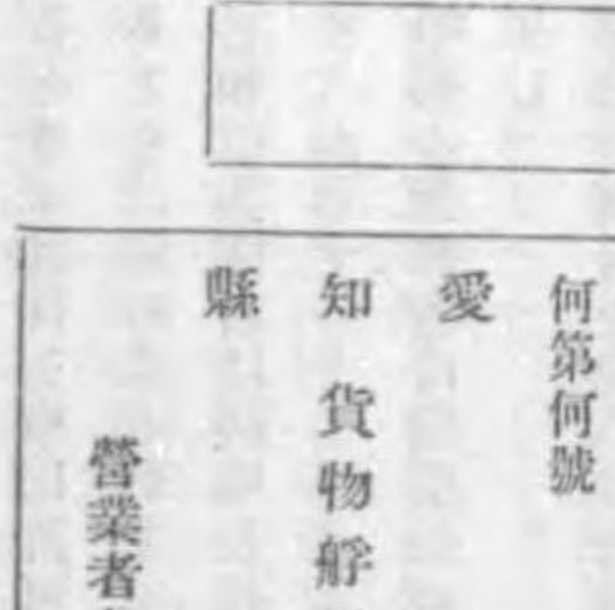 何第何號
愛
知 貨物艀
縣
營業者